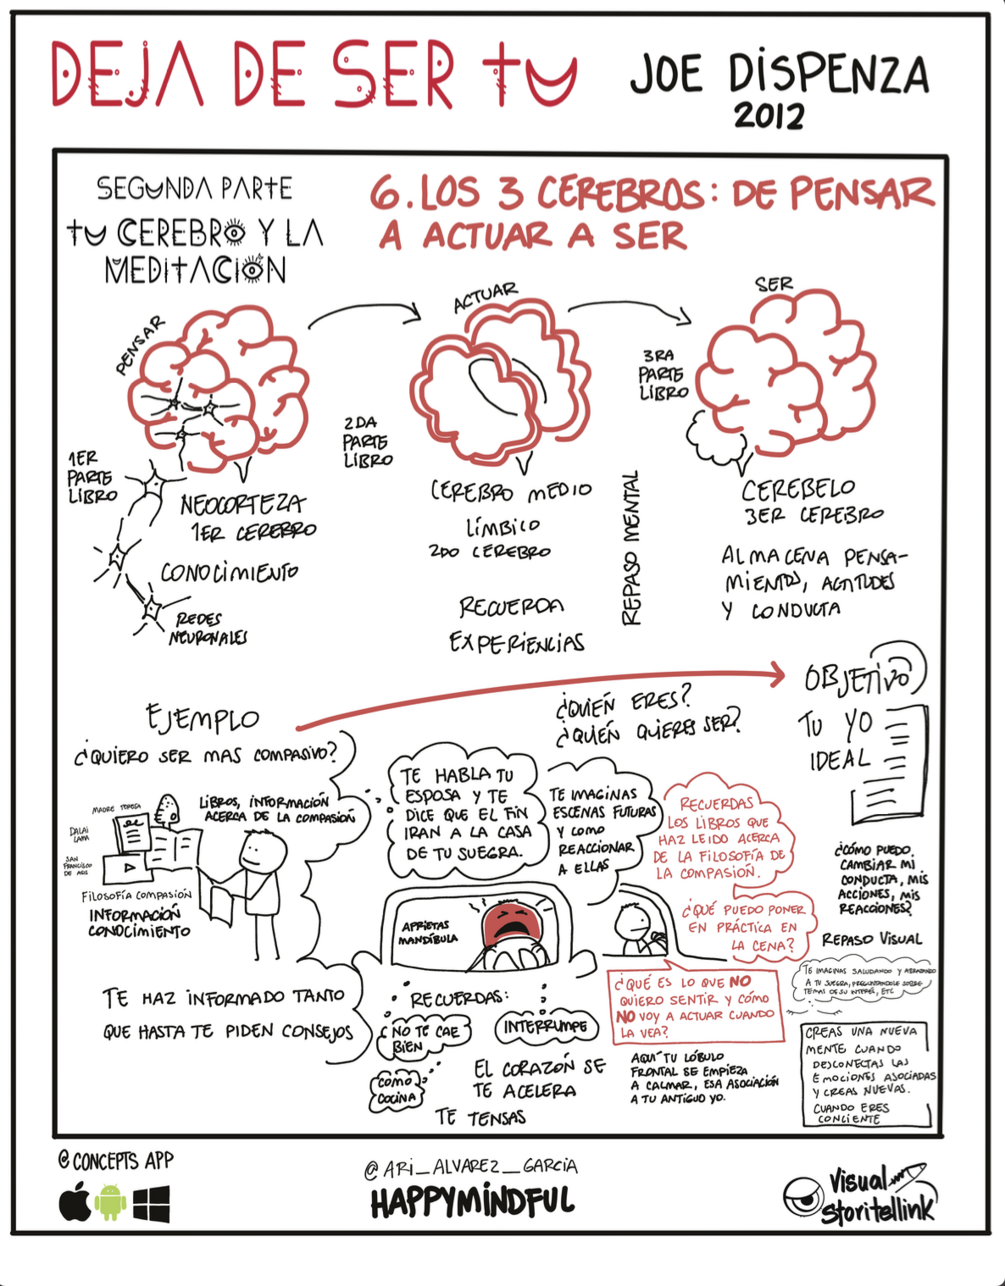 DEJA DE SER TU
JOE DISPENZA
2012
SEGUNDA PARTE
TU CEREBRO Y LA
MEDITACIÓN
6. LOS 3 CEREBROS: DE PENSAR
A ACTUAR A SER
PENSAR
ACTUAR
SER
1ER
PARTE
LIBRO
NEOCORTEZA
1ER CEREBRO
CONOCIMIENTO
REDES
NEURONALES
2DA
PARTE
LIBRO
CEREBRO MEDIO
LÍMBICO
2DO CEREBRO
RECUERDA
EXPERIENCIAS
REPASO MENTAL
3RA
PARTE
LIBRO
CEREBELO
3ER CEREBRO
ALMACENA PENSA-
MIENTOS, ACTITUDES
Y CONDUCTA
EJEMPLO
¿QUIERO SER MAS COMPASIVO?
LIBROS, INFORMACIÓN
ACERCA DE LA COMPASIÓN
MADRE TERESA
DALAI
LAMA
SAN
FRANCISCO
DE ASIS
FILOSOFÍA COMPASIÓN
INFORMACIÓN
CONOCIMIENTO
TE HAZ INFORMADO TANTO
QUE HASTA TE PIDEN CONSEJOS
¿QUIÉN ERES?
¿QUIÉN QUIERES SER?
OBJETIVO
TU YO
IDEAL
TE HABLA TU
ESPOSA Y TE
DICE QUE EL FIN
IRAN A LA CASA
DE TU SUEGRA.
TE IMAGINAS
ESCENAS FUTURAS
Y COMO
REACCIONAR
A ELLAS
RECUERDAS
LOS LIBROS QUE
HAZ LEIDO ACERCA
DE LA FILOSOFÍA DE
LA COMPASIÓN.
¿QUÉ PUEDO PONER
EN PRÁCTICA EN
LA CENA?
APRIETAS
MANDÍBULA
RECUERDAS:
NO TE CAE
BIEN
INTERRUMPE
COMO
COCINA
EL CORAZÓN SE
TE ACELERA
TE TENSAS
¿QUÉ ES LO QUE NO
QUIERO SENTIR Y CÓMO
NO VOY A ACTUAR CUANDO
LA VEA?
AQUÍ TU LÓBULO
FRONTAL SE EMPIEZA
A CALMAR, ESA ASOCIACIÓN
A TU ANTIGUO YO.
¿CÓMO PUEDO
CAMBIAR MI
CONDUCTA, MIS
ACCIONES, MIS
REACCIONES?
REPASO VISUAL
TE IMAGINAS SALUDANDO Y ABRAZANDO
A TU SUEGRA, PREGUNTANDOLE SOBRE
TEMAS DE SU INTERÉS, ETC
CREAS UNA NUEVA
MENTE CUANDO
DESCONECTAS LAS
EMOCIONES ASOCIADAS
Y CREAS NUEVAS.
CUANDO ERES
CONCIENTE
@ CONCEPTS APP
@ ARI_ALVAREZ_GARCIA
HAPPYMINDFUL
Visual
Storitellink